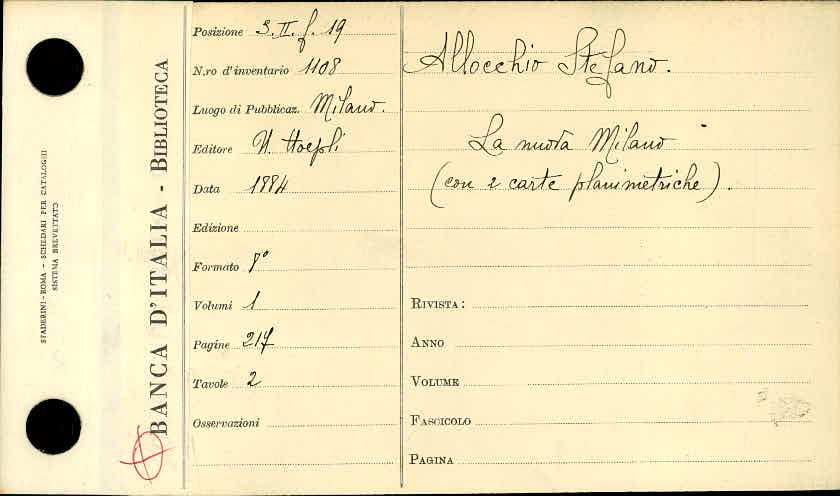 STADERINI - ROMA - SCHEDARI PER CATALOGHI
SISTEMA BREVETTATO
BANCA D'ITALIA - BIBLIOTECA
Posizione 3. II. f. 19
N.ro d'inventario 1108
Luogo di Pubblicaz. Milano.
Editore U. Hoepli
Data 1884
Edizione
Formato 8°
Volumi 1
Pagine 217
Tavole 2
Osservazioni
Allocchio Stefano.
La nuova Milano
(con 2 carte planimetriche).
RIVISTA:
ANNO
VOLUME
FASCICOLO
PAGINA